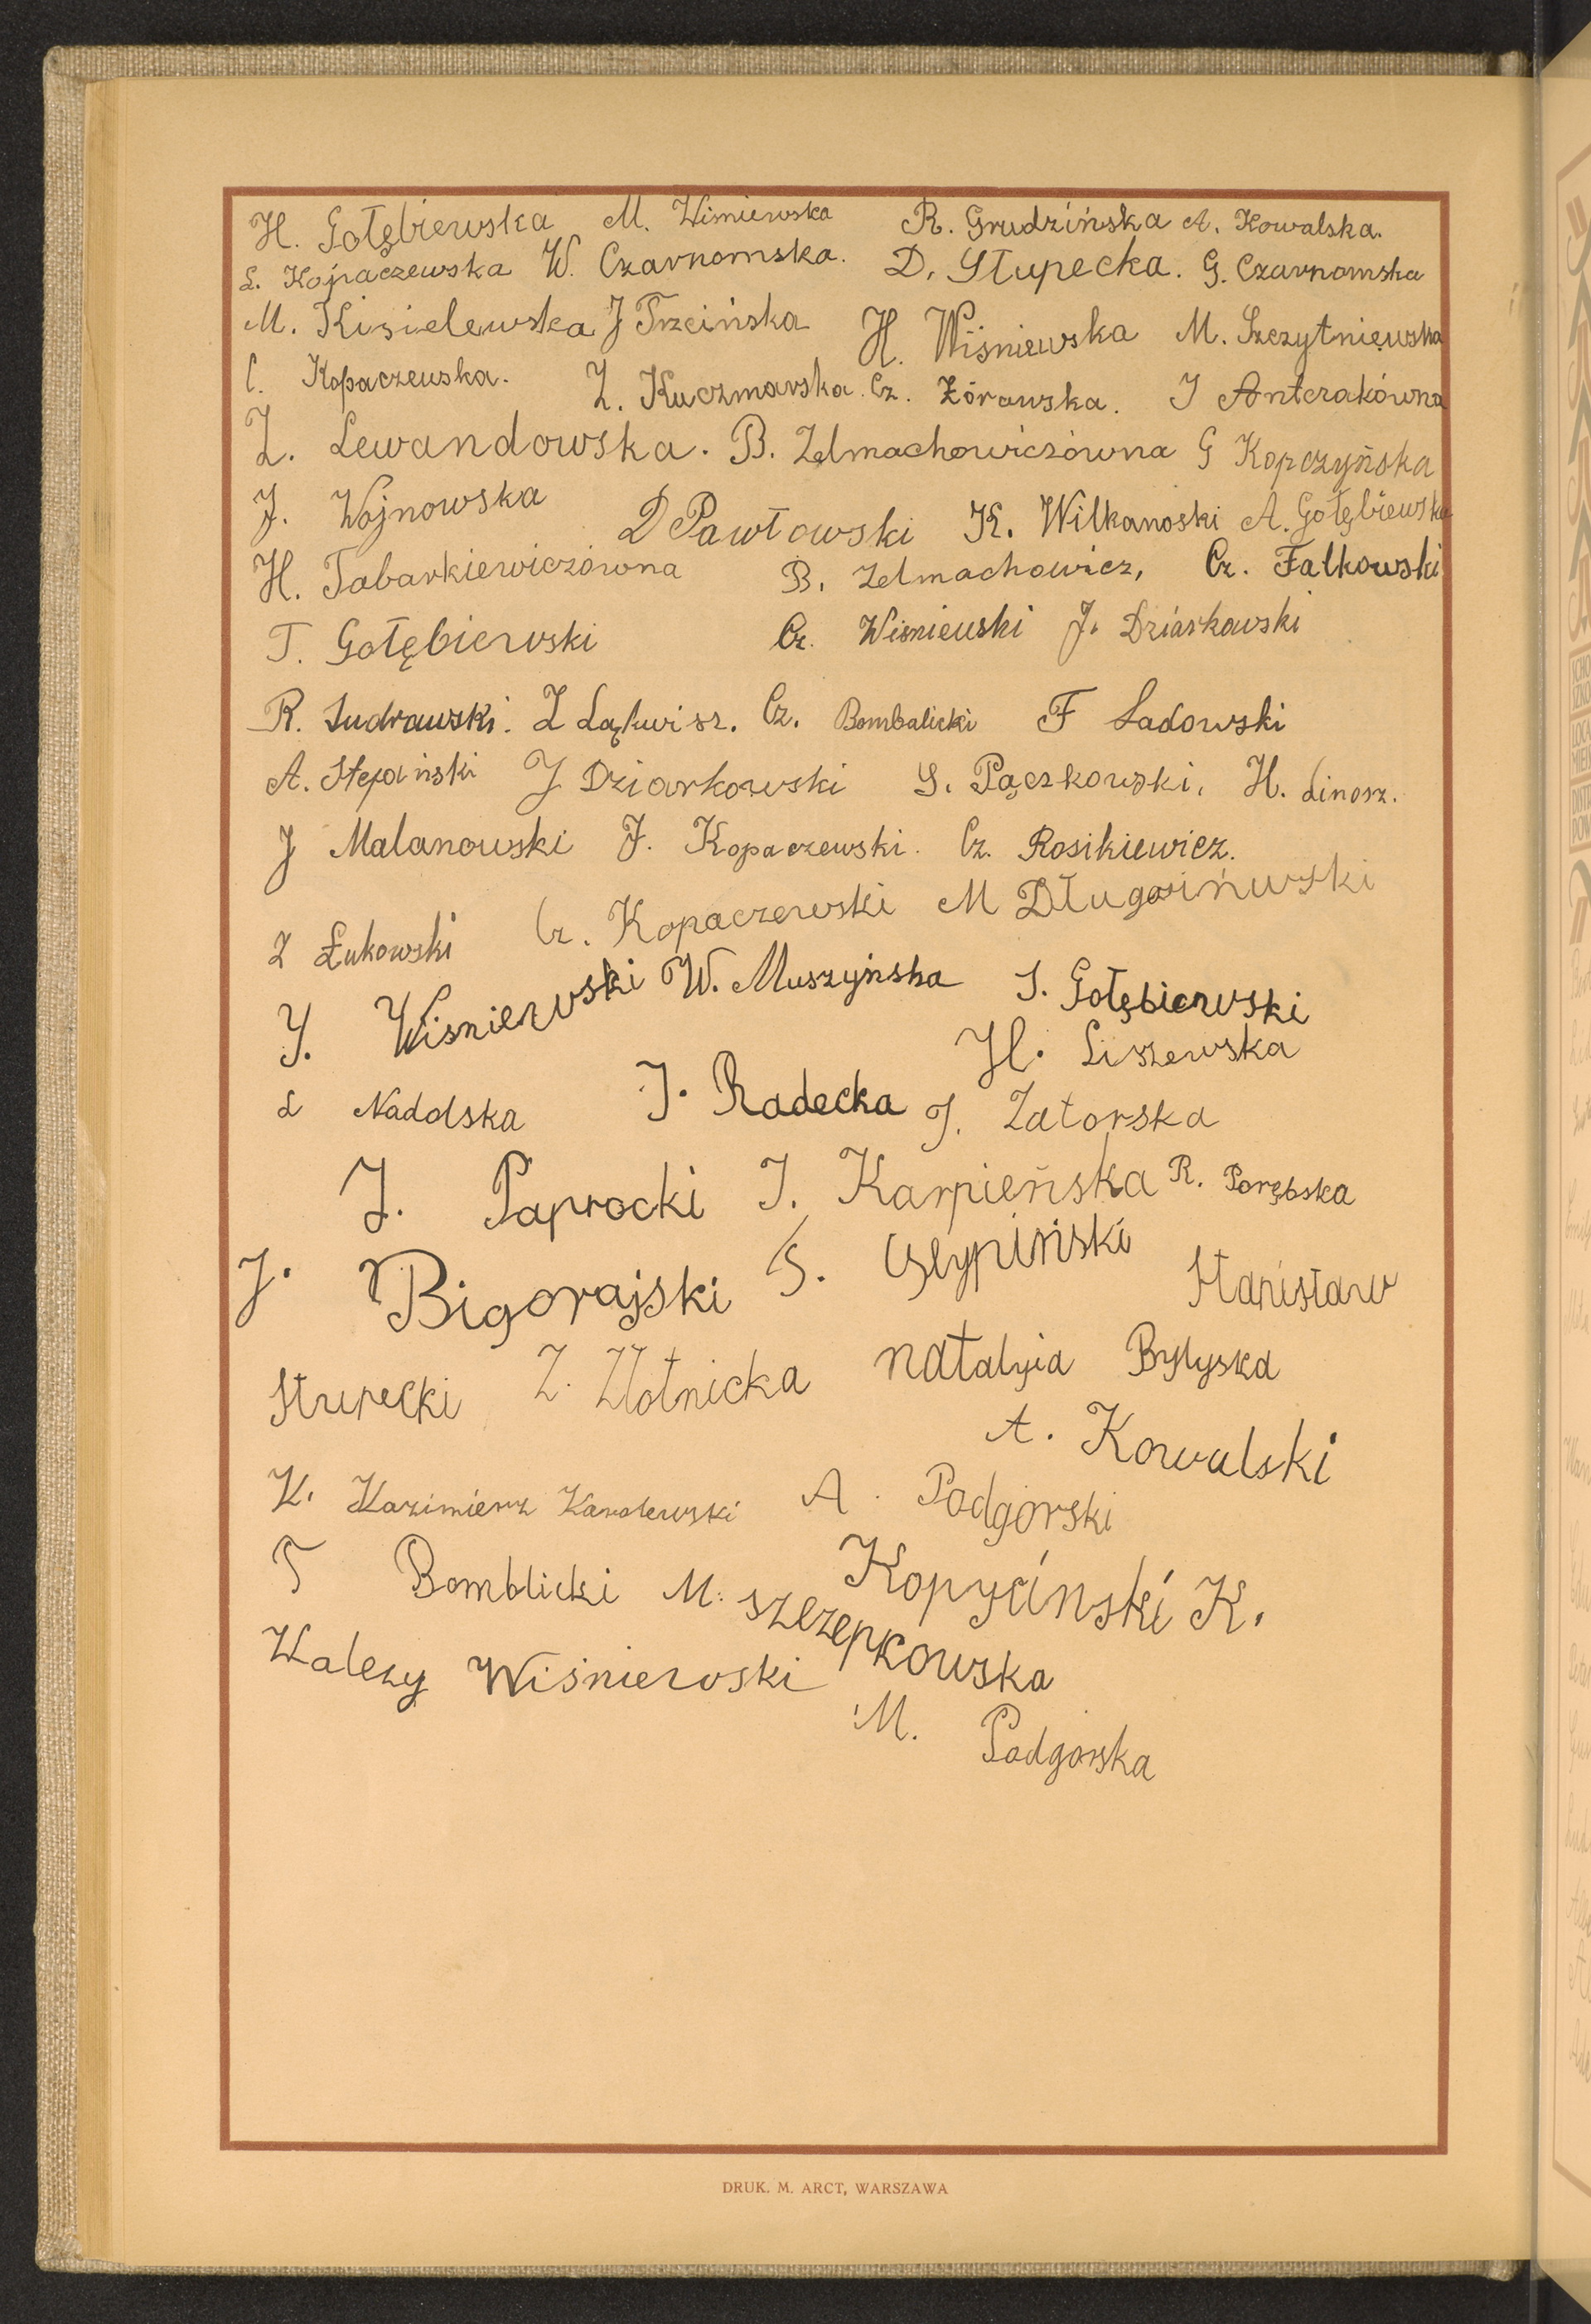 H. Gołębiewska M. Wiśniewska R. Grudzińska A. Kowalska.
L. Kopaczewska W. Czarnomska. D. Słupecka. G. Czarnomska
M. Kisielewska J Trzcińska H. Wiśniewska M. Szczytniewska
C. Kopaczewska. Z. Kuczmarska. Cz. Żórawska. J Antczakówna
Z. Lewandowska. B. Zelmachowiczówna G Kopczyńska
J. Wojnowska D Pawłowski K. Wilkanoski A. Gołębiewska
H. Tabarkiewiczówna B. Zelmachowicz, Cz. Falkowski
T. Gołębiewski Cz. Wiśniewski J. Dziarkowski
R. Sudrawski. Z Cz. Bombalicki F Sadowski
A. Stepański J Dziarkowski S. Pączkowski, H. Linosz.
J Malanowski J. Kopaczewski. Cz. Rosikiewicz.
Z Łukowski Cz. Kopaczewski M
J. Wisniewski W. Muszyńska S. Gołębiewski
H. Liszewska
L Nadolska J. Radecka J. Zatorska
J. Paprocki J. Karpieńska R. Porębska
J. Bigorajski S. Stanisław
Słupecki Z. Złotnicka natalyia Bylyska
A. Kowalski
K. Kazimierz Karolewski A. Podgorski
T Bomblicki M. szczepkowska Kopyciński K.
Walezy Wiśniewski
M. Podgorska
DRUK. M. ARCT, WARSZAWA